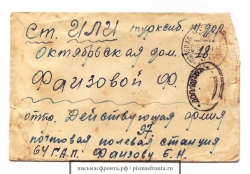 Ст. ИЛИ Турксиб. ж.дор.
Октябрьская дом. 18
Фаизовой Ф.
отпр. Действующая армия
97
почтовая полевая станция
64 Г.А.П. Фаизову Б. Н.
письмасфронта.рф / pismasfronta.ru